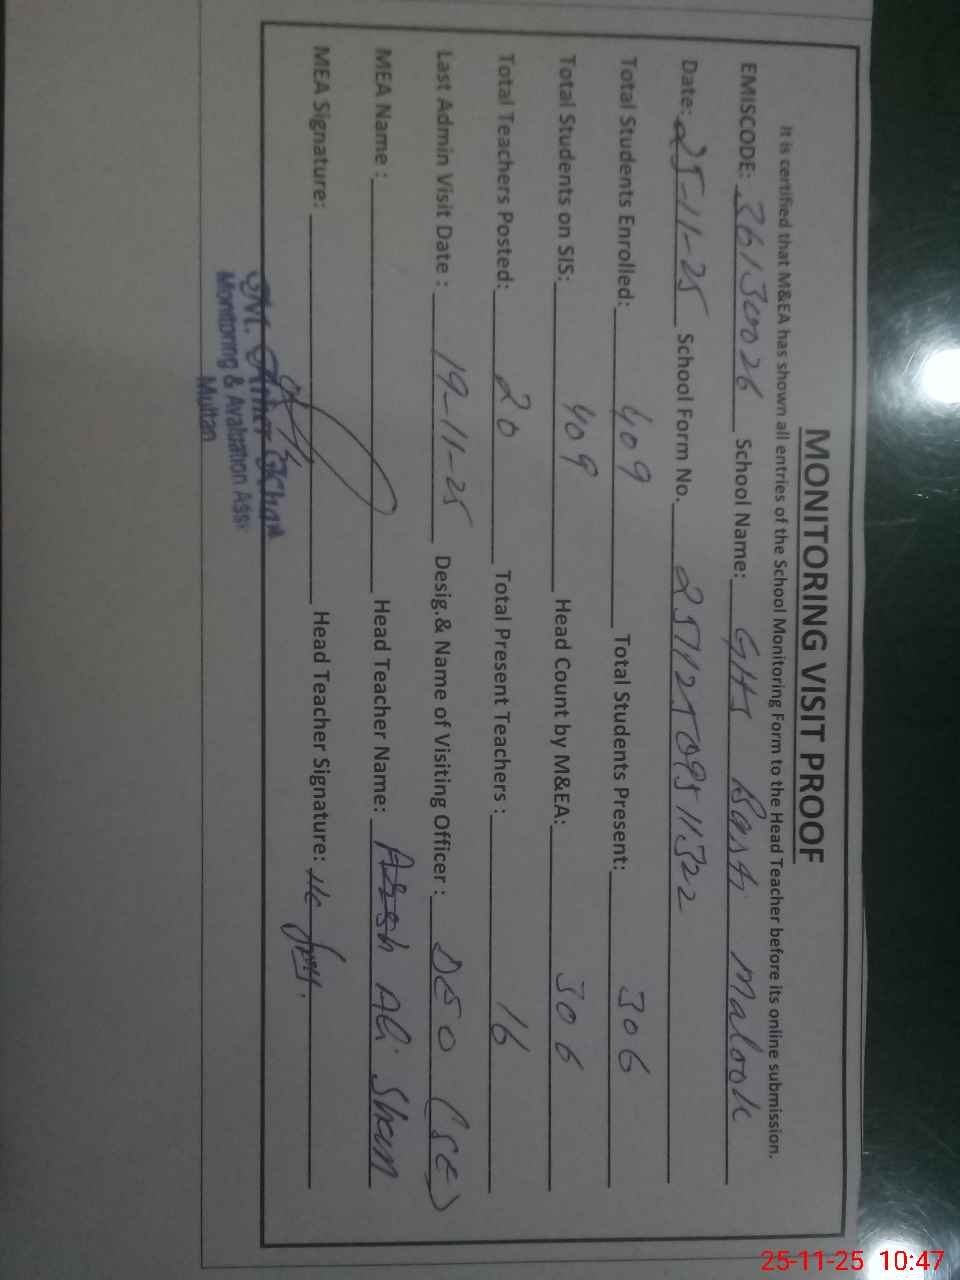 MONITORING VISIT PROOF
It is certified that M&EA has shown all entries of the School Monitoring Form to the Head Teacher before its online submission.
EMISCODE: 36130026 School Name: GHS Basti Malook
Date: 25-11-25 School Form No. 25112509511322
Total Students Enrolled: 409 Total Students Present: 306
Total Students on SIS: 409 Head Count by M&EA: 306
Total Teachers Posted: 20 Total Present Teachers : 16
Last Admin Visit Date : 19-11-25 Desig.& Name of Visiting Officer : DEO (SE)
MEA Name : Head Teacher Name: Ali
MEA Signature: Head Teacher Signature:
Monitoring & Avaluation Assi
Multan
25-11-25 10:47